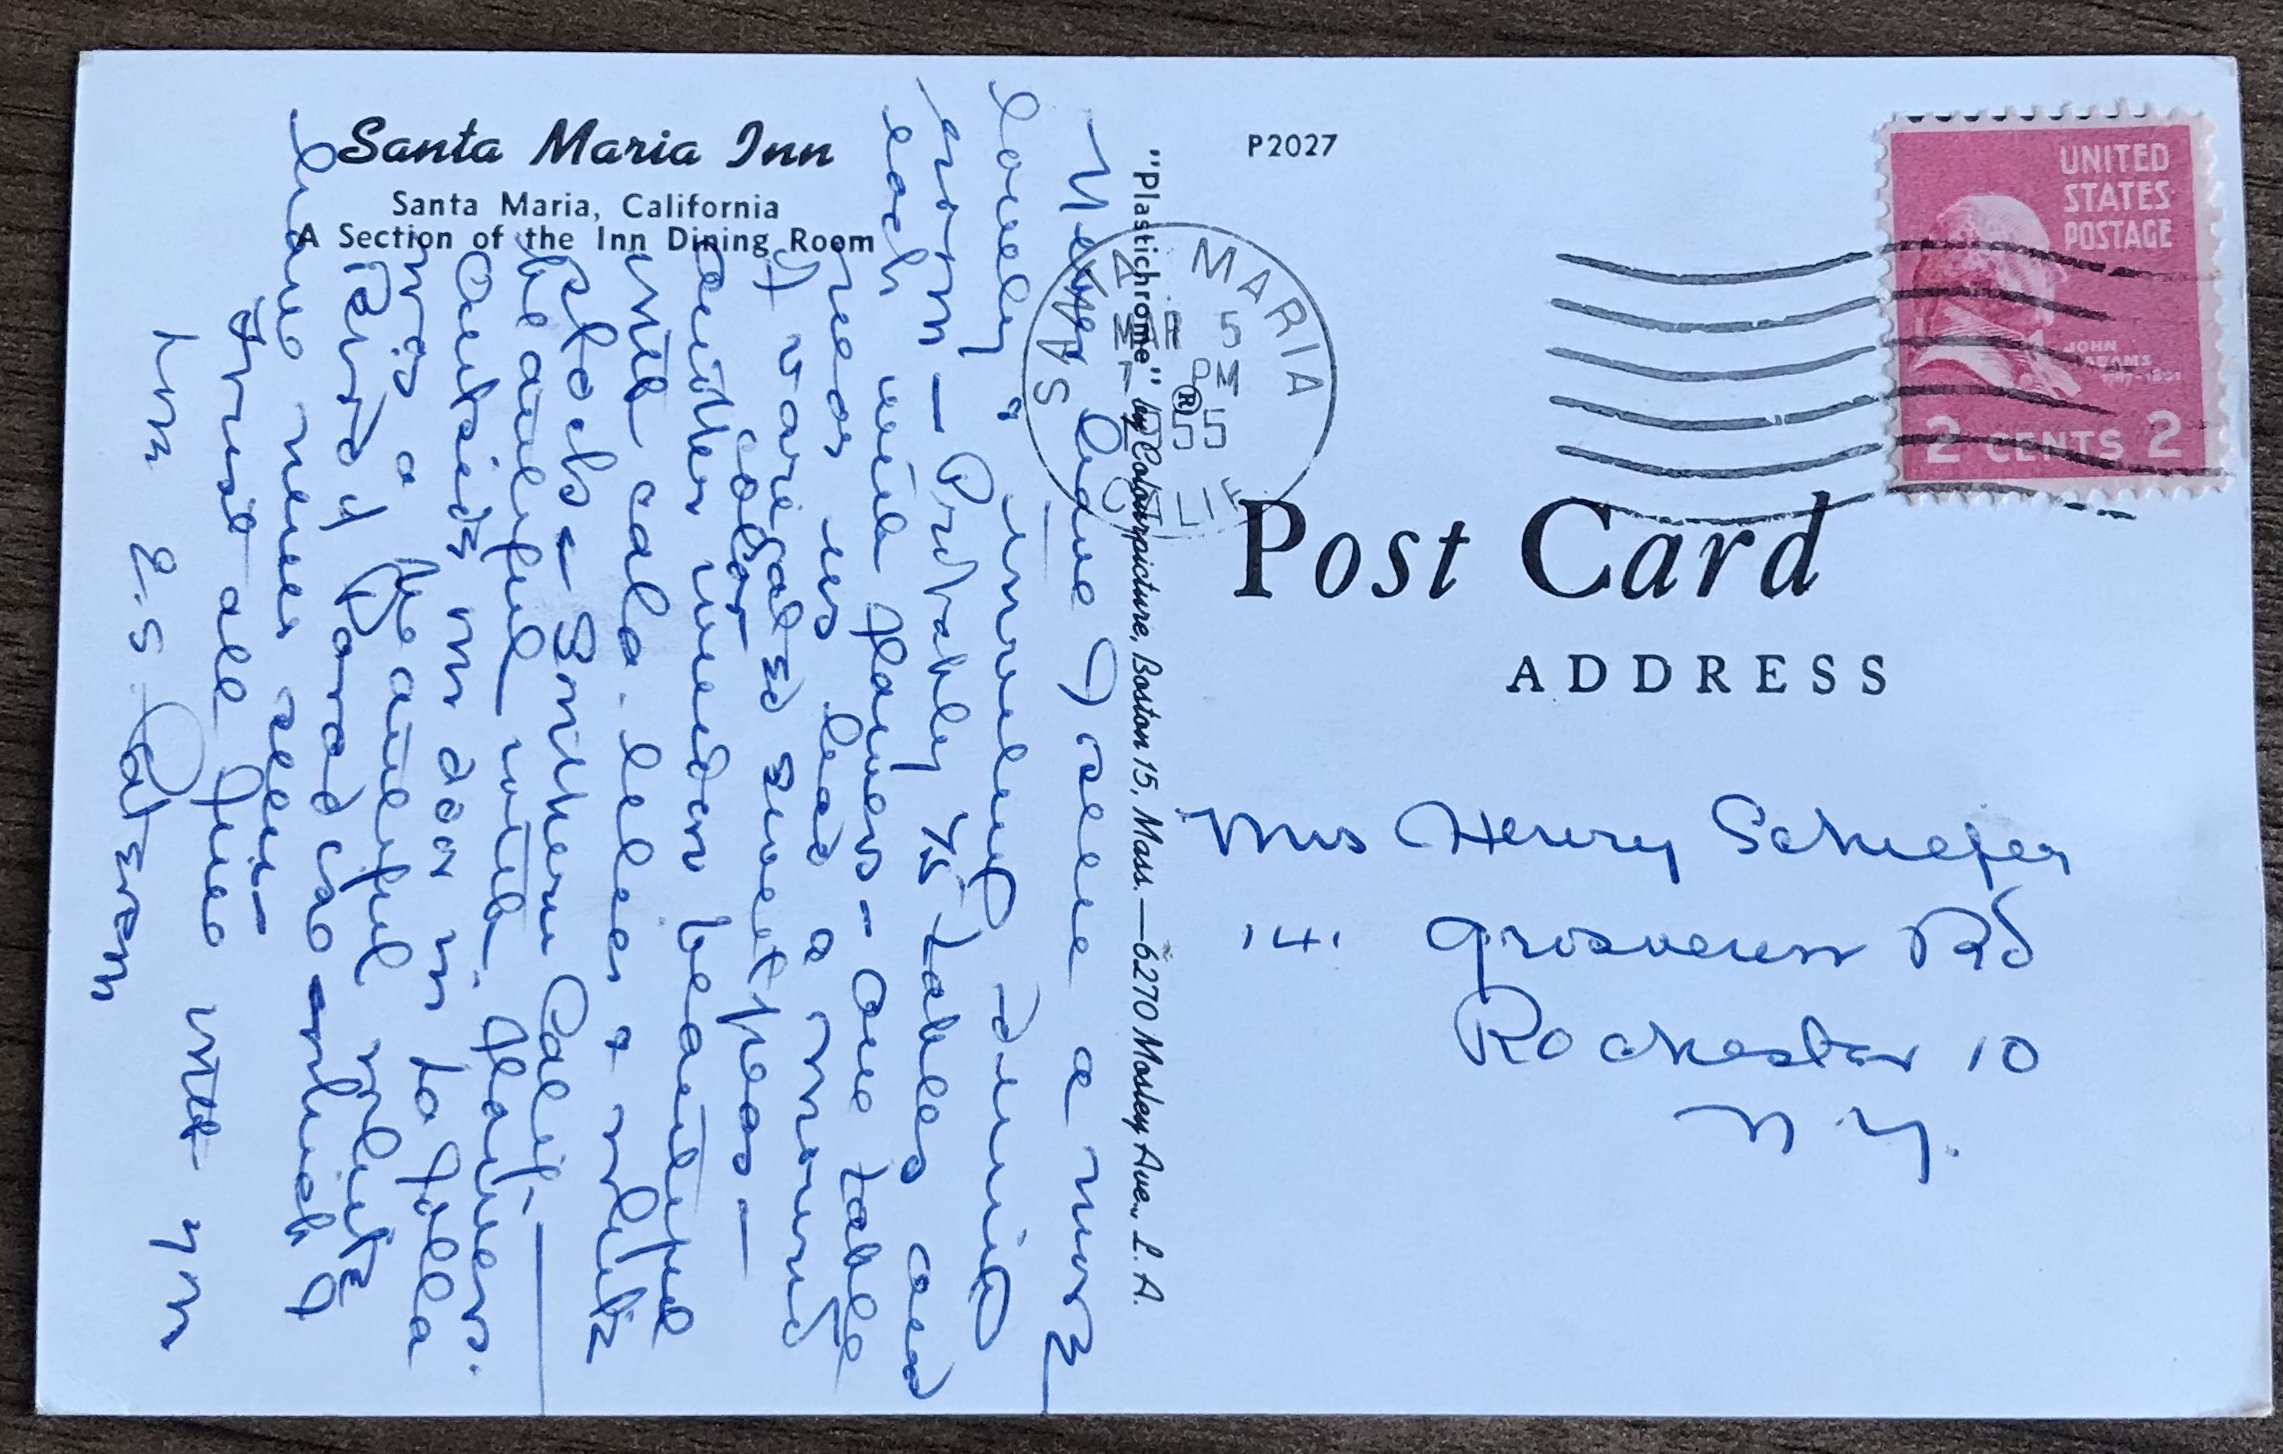 Santa Maria Inn
Santa Maria, California
A Section of the Inn Dining Room
P2027
UNITED
STATES
POSTAGE
JOHN
ADAMS
2 CENTS 2
SANTA MARIA
MAR 5
PM
1955
CALIF
Post Card
ADDRESS
Mrs Henry Schiefer
141 Grosvenor Rd
Rochester 10
N.Y.
"Plastichrome" ® by Colourpicture, Boston 15, Mass. — 6270 Mosley Ave., L.A.
Never have I seen a more
lovely, dining
room — Probably 75 tables and
each with flowers — One table
near us had a mound
of varigated sweet peas —
color
another window beautiful
with cala-lillies & white
stock — Southern Calif.
beautiful with flowers.
Outside our door in La Jolla
was a beautiful white
Bird of Paradise — which I
have never seen —
Trust all fine with you
Mrs E.S. Pateman